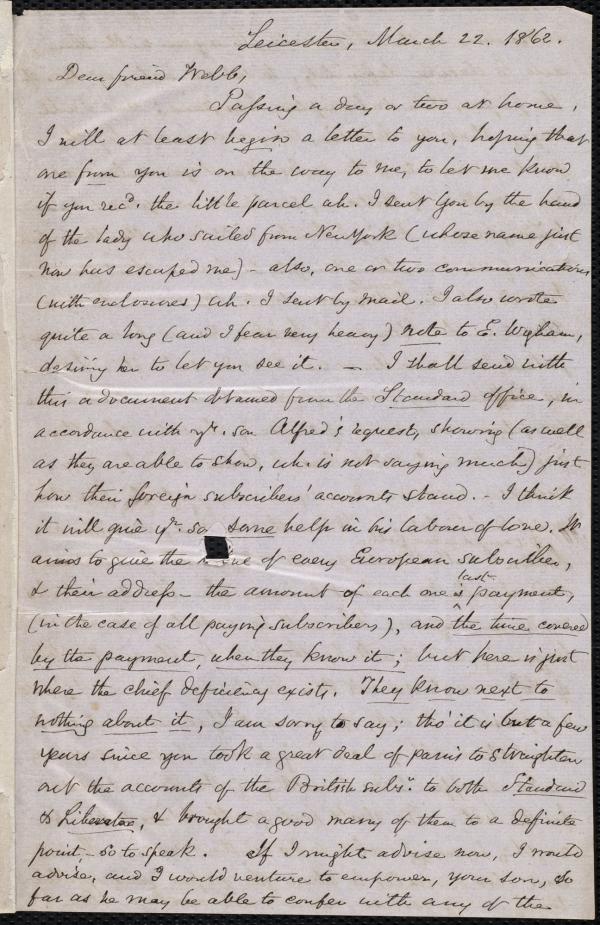 Leicester, March 22. 1862.
Dear friend Webb,
Passing a day or two at home,
I will at least begin a letter to you, hoping that
one from you is on the way to me, to let me know
if you recd. the little parcel wh. I sent you by the hand
of the lady who sailed from New York (whose name just
now has escaped me) - also, one or two communications
(with enclosures) wh. I sent by mail. I also wrote
quite a long (and I fear very heavy) note to E. Wigham,
desiring her to let you see it. — I shall send with
this a document obtained from the Standard office, in
accordance with yr. son Alfred's request, showing (as well
as they are able to show, wh. is not saying much) just
how their foreign subscribers' accounts stand. - I think
it will give yr. son some help in his labour of love. It
aims to give the name of every European subscriber,
& their address - the amount of each one's last payment,
(in the case of all paying subscribers), and the time covered
by the payment, when they know it; but here is just
where the chief deficiency exists. They know next to
nothing about it, I am sorry to say; tho' it is but a few
years since you took a great deal of pains to straighten
out the accounts of the British subs. to both Standard
& Liberator, & brought a good many of them to a definite
point, - so to speak. If I might advise now, I would
advise, and I would venture to empower, your son, so
far as he may be able to confer with any of the